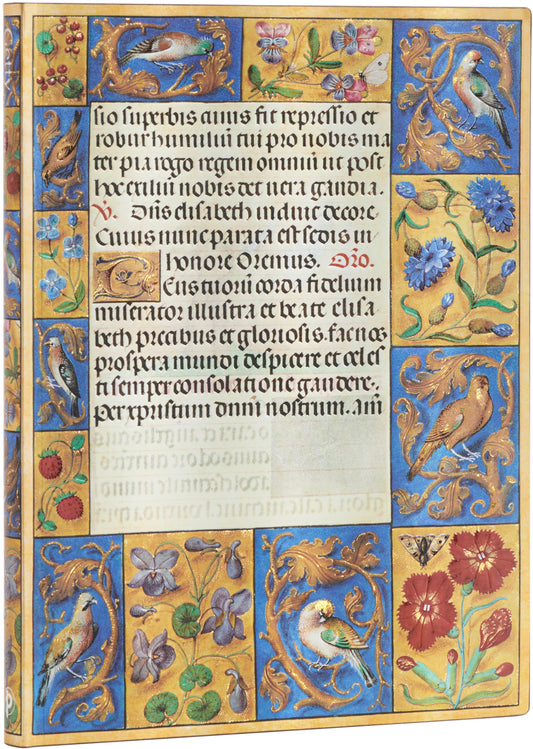 sio superbis cuius fit repressio et
robur humiliū tui pro nobis ma
ter pia rogo regem omniū ut post
hoc exiliū nobis det uera gaudia.
V. Dn̄s elisabeth induit decore.
Cuius nunc parata est sedis in
honore Oremus. Or̄o.
DEus tuorū corda fidelium
miserator illustra et beate elisa
beth precibus et gloriosis. fac nos
prospera mundi despicere et celes
ti semper consolatione gaudere.
Per xpristum dnm̄ nostrum. am̄